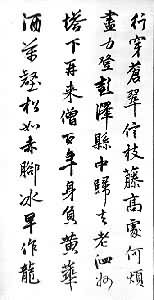 行穿蒼翠倚枝藤高處何煩
盡力登彭澤縣中歸去老泗州
塔下再來僧百年身負黃華
酒萬壑松如赤腳冰早作龍